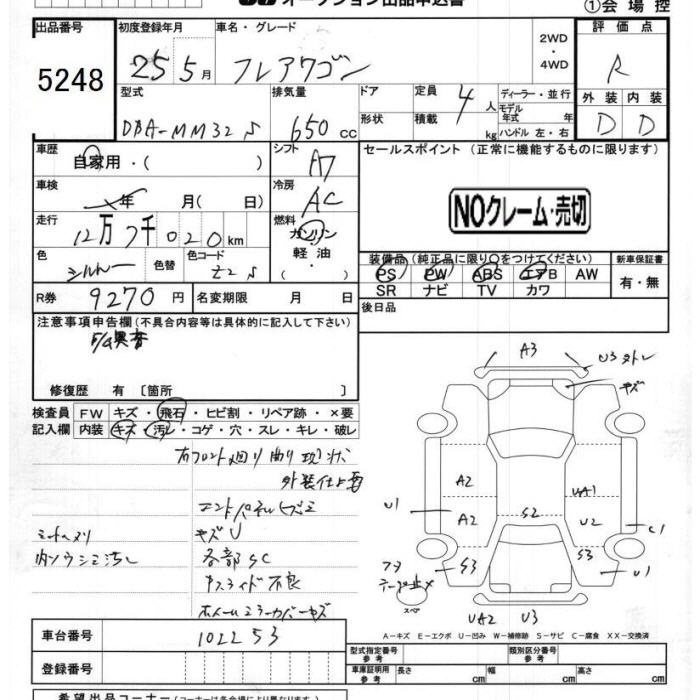 オークション出品申込書
①会場控
出品番号
5248
初度登録年月
25 5月
車名・グレード
フレアワゴン
2WD
・
4WD
評価点
R
外装 内装
D D
型式
DBA-MM32S
排気量
650cc
ドア
形状
定員 4人
積載 kg
ディーラー・並行
モデル
年式 年
ハンドル 左・右
車歴
自家用・( )
シフト
A7
セールスポイント (正常に機能するものに限ります)
車検
年 月( 日)
冷房
AC
NOクレーム・売切
走行
12万7千020km
燃料
ガソリン
軽油
・( )
色
シルバー
色替
色コード
Z2S
装備品 (純正品に限り○をつけてください)
PS PW ABS エアB AW
SR ナビ TV カワ
新車保証書
有・無
R券 9270円
名変期限 月 日
後日品
注意事項申告欄 (不具合内容等は具体的に記入して下さい)
F/G異音
修復歴 有 〔箇所 〕
検査員
記入欄
FW キズ・飛石・ヒビ割・リペア跡・×要
内装 キズ・汚レ・コゲ・穴・スレ・キレ・破レ
右フロント廻り曲り現状
外装仕上要
キズU
各部SC
スライド不良
ホイールミラーカバーキズ
シートヘリ
A3
U3
キズ
A2
A2
UA1
U2
S2
U1
C1
S3
S3
U1
UA2 U3
スペア
A-キズ E-エクボ U-凹み W-補修跡 S-サビ C-腐食 XX-交換済
車台番号 102253
登録番号
型式指定番号
参考
類別区分番号
参考
車庫証明用
参考
長さ cm 幅 cm 高さ cm
希望出品コーナー